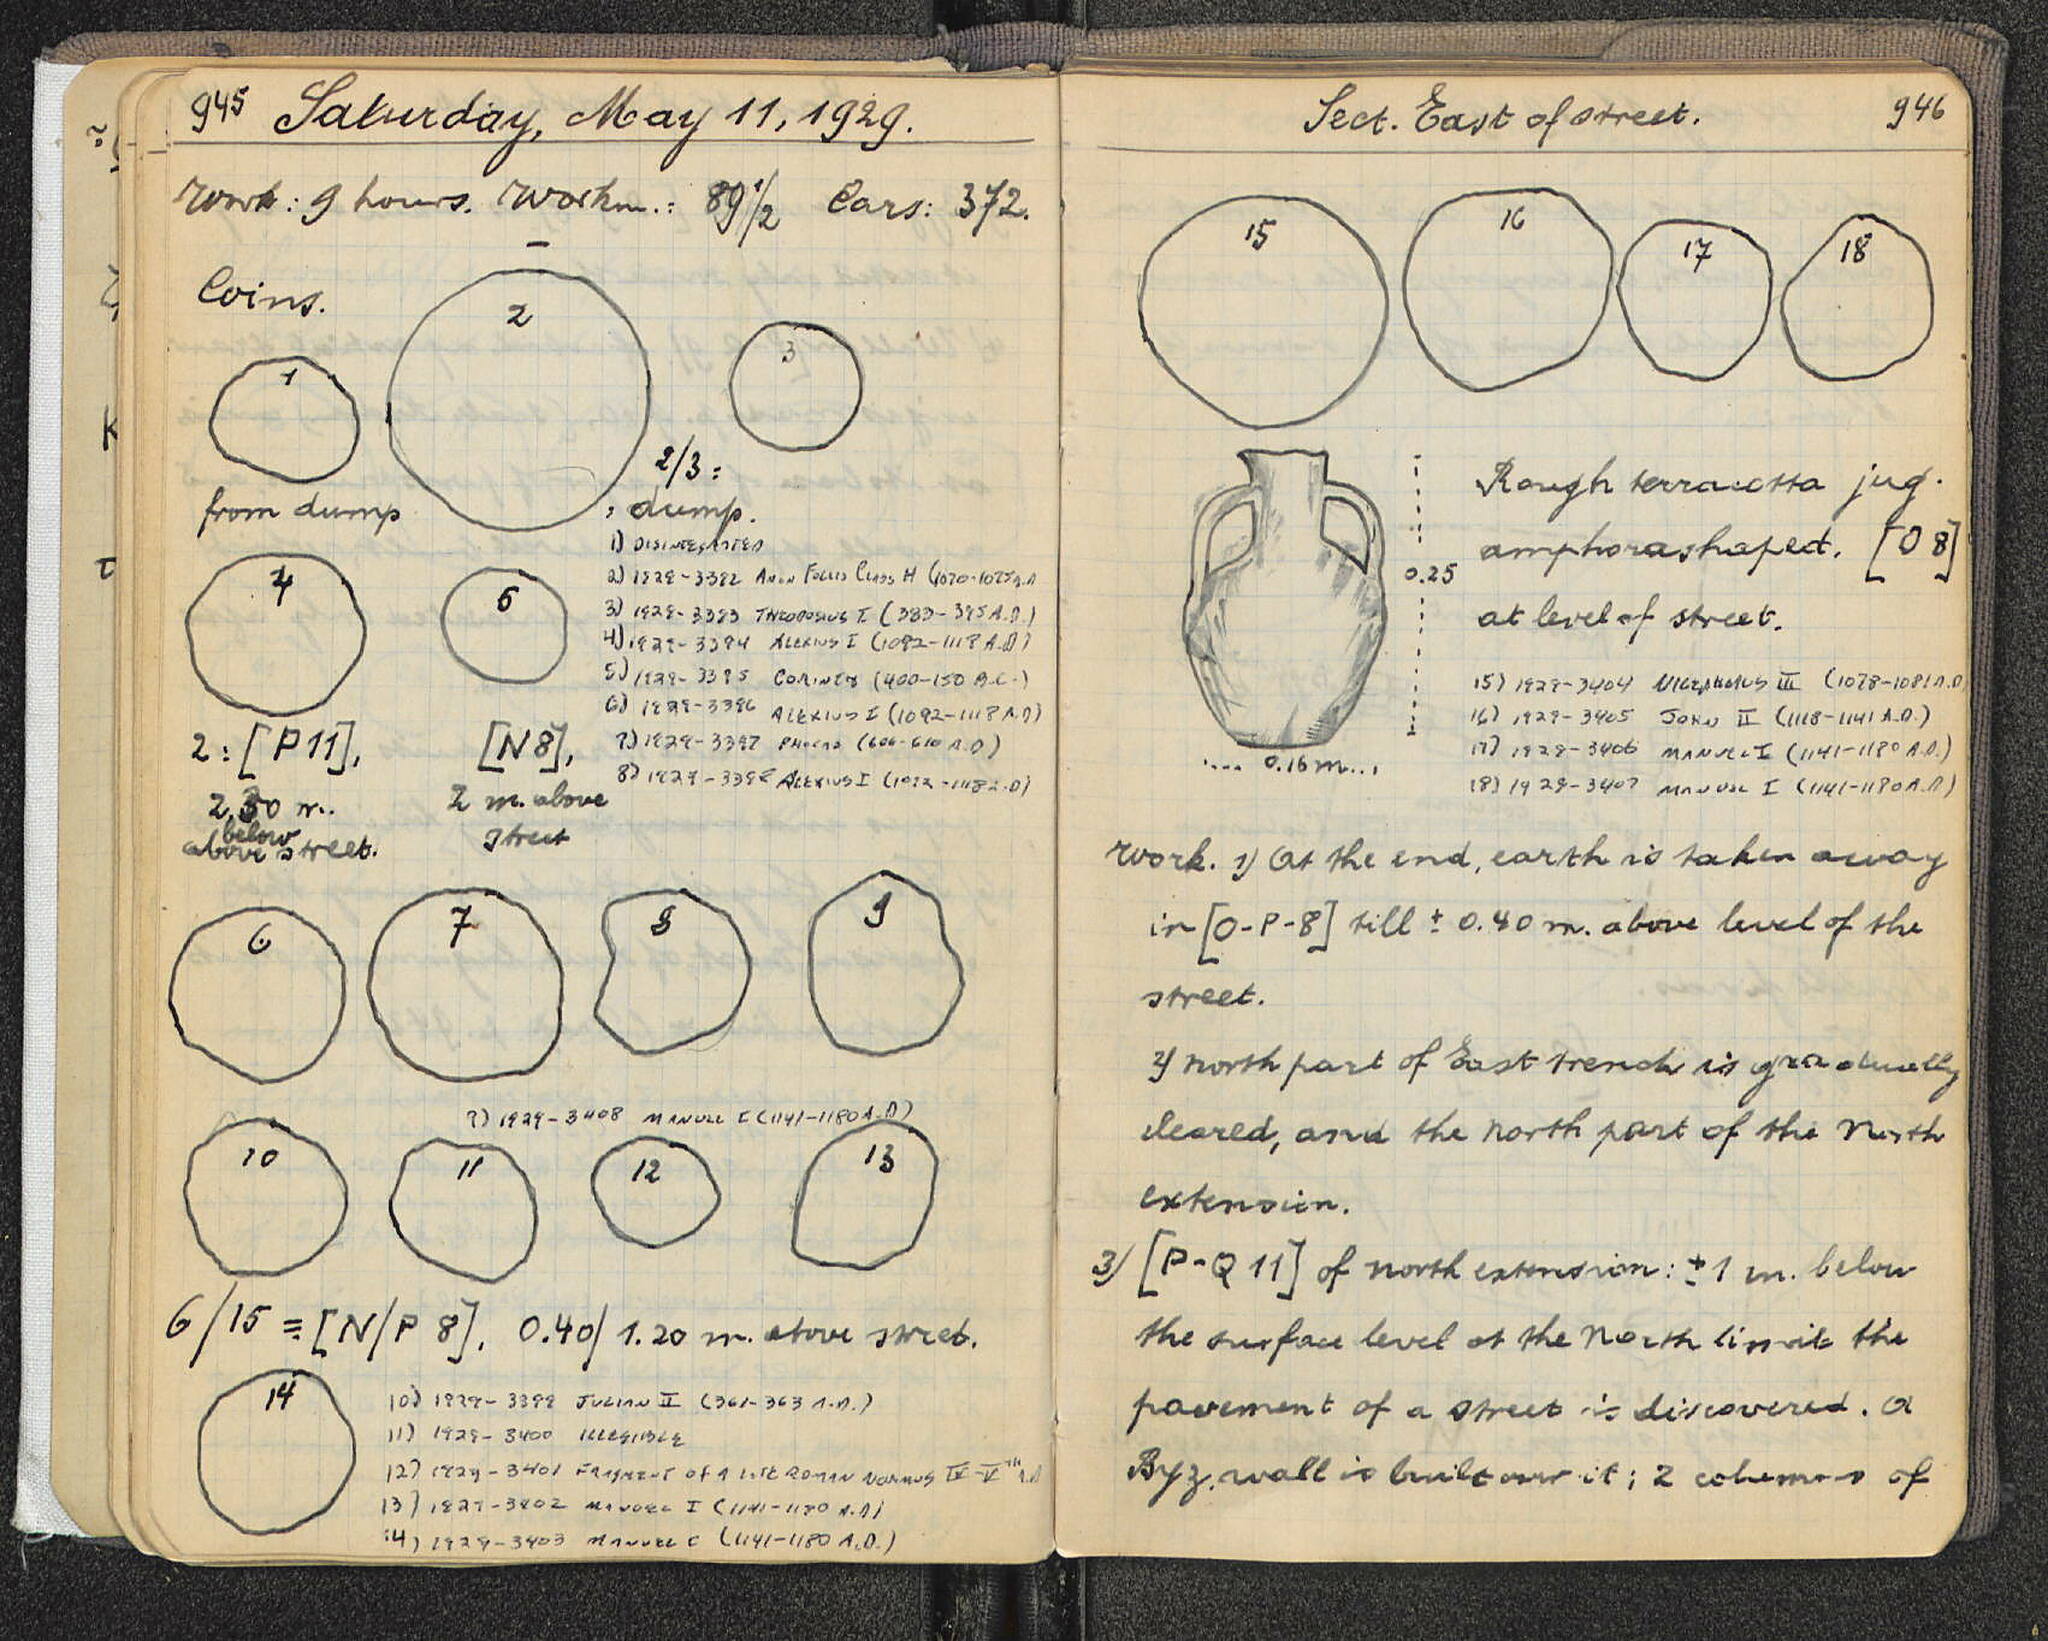 945 Saturday, May 11, 1929.
Work: 9 hours. Workm.: 89 1/2 Cars: 372.
Coins.
1
2
3
from dump
2/3:
dump.
1) DISINTEGRATED
2) 1929-3392 ANON FOLLIS CLASS H (1070-1075 A.D
3) 1929-3393 THEODOSIUS I (383-395 A.D.)
4) 1929-3394 ALEXIUS I (1092-1118 A.D)
5) 1929-3395 CORINTH (400-150 B.C.)
6) 1929-3396 ALEXIUS I (1092-1118 A.D)
7) 1929-3397 PHOCAS (606-610 A.D)
8) 1929-3398 ALEXIUS I (1092-1118 A.D)
4
5
2: [P 11],
2.50 m.
below
above street.
[N8],
2 m. above
street
6
7
8
9
9) 1929-3408 MANUEL I (1141-1180 A.D)
10
11
12
13
6/15 = [N/P 8], 0.40/1.20 m. above street.
14
10) 1929-3399 JULIAN II (361-363 A.D.)
11) 1929-3400 ILLEGIBLE
12) 1929-3401 FRAGMENT OF A LATE ROMAN NUMMUS IV-V TH A.D
13) 1929-3402 MANUEL I (1141-1180 A.D)
14) 1929-3403 MANUEL I (1141-1180 A.D.)
Sect. East of street. 946
15
16
17
18
Rough terracotta jug.
amphorashaped. [O 8]
0.25
at level of street.
0.16 m.
15) 1929-3404 NICEPHORUS III (1078-1081 A.D
16) 1929-3405 JOHN II (1118-1141 A.D.)
17) 1929-3406 MANUEL I (1141-1180 A.D.)
18) 1929-3407 MANUEL I (1141-1180 A.D)
Work. 1) At the end, earth is taken away
in [O-P-8] till ± 0.40 m. above level of the
street.
2) North part of East trench is gradually
cleared, and the North part of the North
extension.
3) [P-Q 11] of North extension: ± 1 m. below
the surface level at the North limit the
pavement of a street is discovered. A
Byz. wall is built over it; 2 columns of